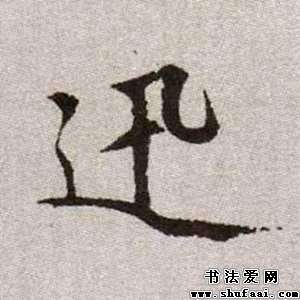 迅
书法爱网
www.shufaai.com